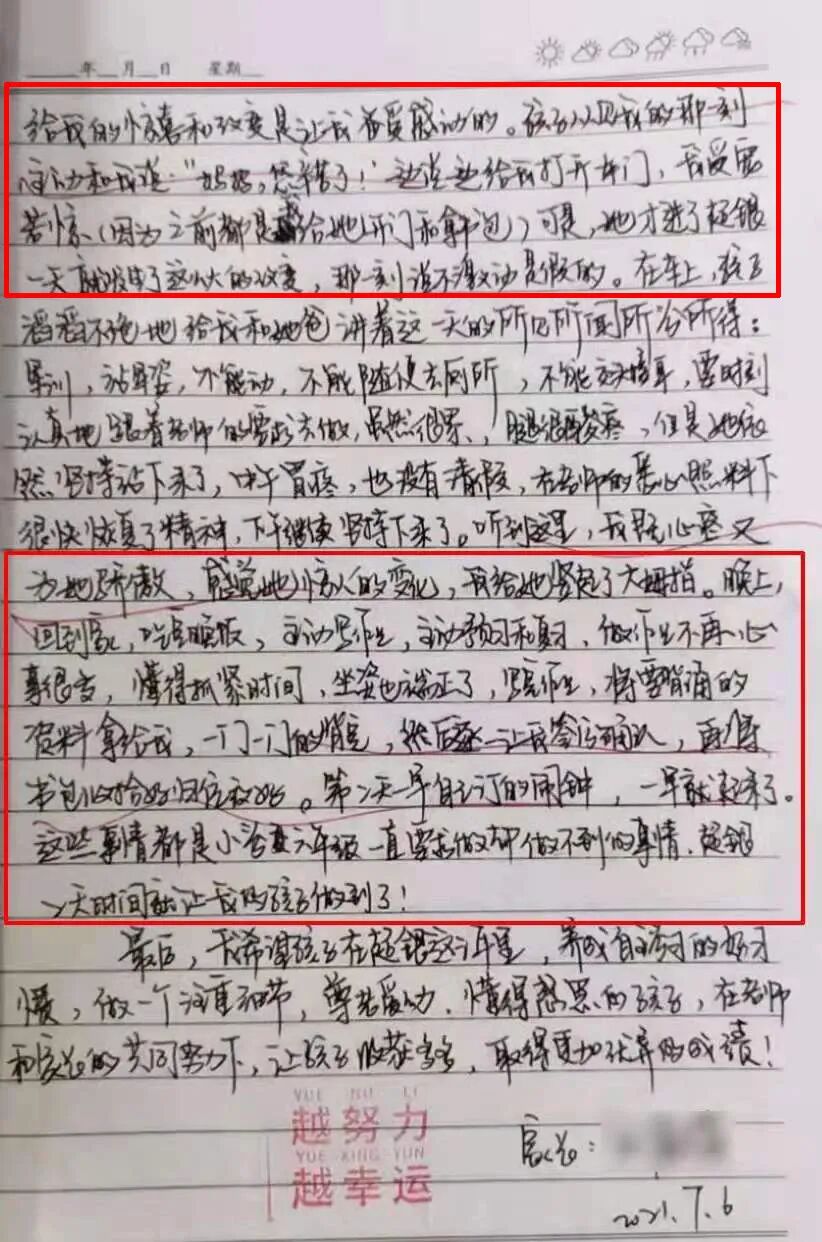 年 月 日 星期
给我的惊喜和改变是让我备受感动的。孩子从见我的那一刻
主动和我说:“妈妈,您辛苦了!”边说边给我打开车门,我受宠
若惊(因为之前都是我给她开门和拿书包)可是,她才进了超银
一天就发生了这么大的改变,那一刻说不激动是假的。在车上,孩子
滔滔不绝地给我和她爸讲着这一天的所见所闻所学所得:
军训,站军姿,不能动,不能随便去厕所,不能交头接耳,要时刻
认真地跟着老师的要求去做,虽然很累、腿很酸疼,但是她依
然坚持站下来了,中午胃疼,也没有请假,在老师的悉心照料下
很快恢复了精神,下午继续坚持下来了。听到这里,我既心疼又
为她骄傲,感觉她惊人的变化,我给她竖起了大拇指。晚上,
回到家,吃完晚饭,主动写作业,主动预习和复习,做作业不再一心
事很多,懂得抓紧时间,坐姿也端正了,写完作业,将要背诵的
资料拿给我,一门一门的背完,然后逐一让我签字确认,再将
书包收拾好归位放好。第二天一早自己订的闹钟,一早就起来了。
这些事情都是小学六年级一直要求做却做不到的事情,超银
一天时间就让我的孩子做到了!
最后,我希望孩子在超银这三年里,养成自主学习的好习
惯,做一个注重细节,尊老爱幼,懂得感恩的孩子,在老师
和家长的共同努力下,让孩子收获多多,取得更加优异的成绩!
YUE NU LI
越努力
YUE XING YUN
越幸运
家长:
2021.7.6